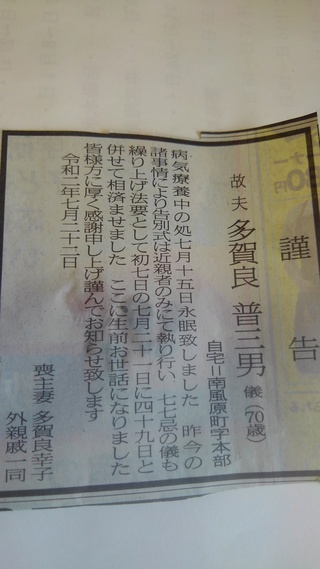 謹告
故夫 多賀良 普三男 儀（70歳）
自宅＝南風原町字本部
病気療養中の処七月十五日永眠致しました 昨今の
諸事情により告別式は近親者のみにて執り行い、七七忌の儀も
繰り上げ法要として初七日の七月二十一日に四十九日と
併せて相済ませました ここに生前お世話になりました
皆様方に厚く感謝申し上げ謹んでお知らせ致します
令和二年七月二十二日
喪主妻 多賀良幸子
外親戚一同
円